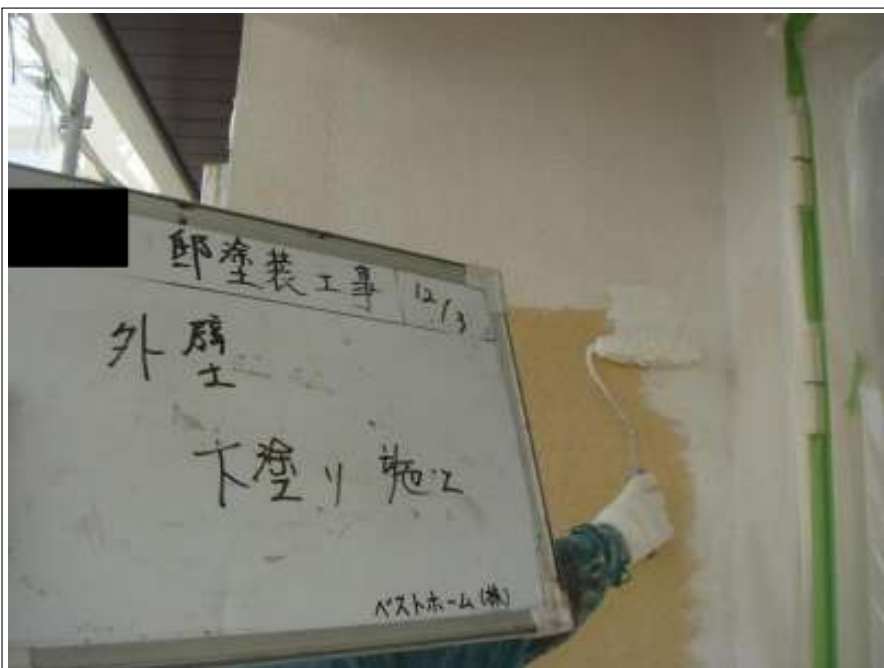 邸塗装工事 12/3
外壁
下塗り施工
ベストホーム(株)